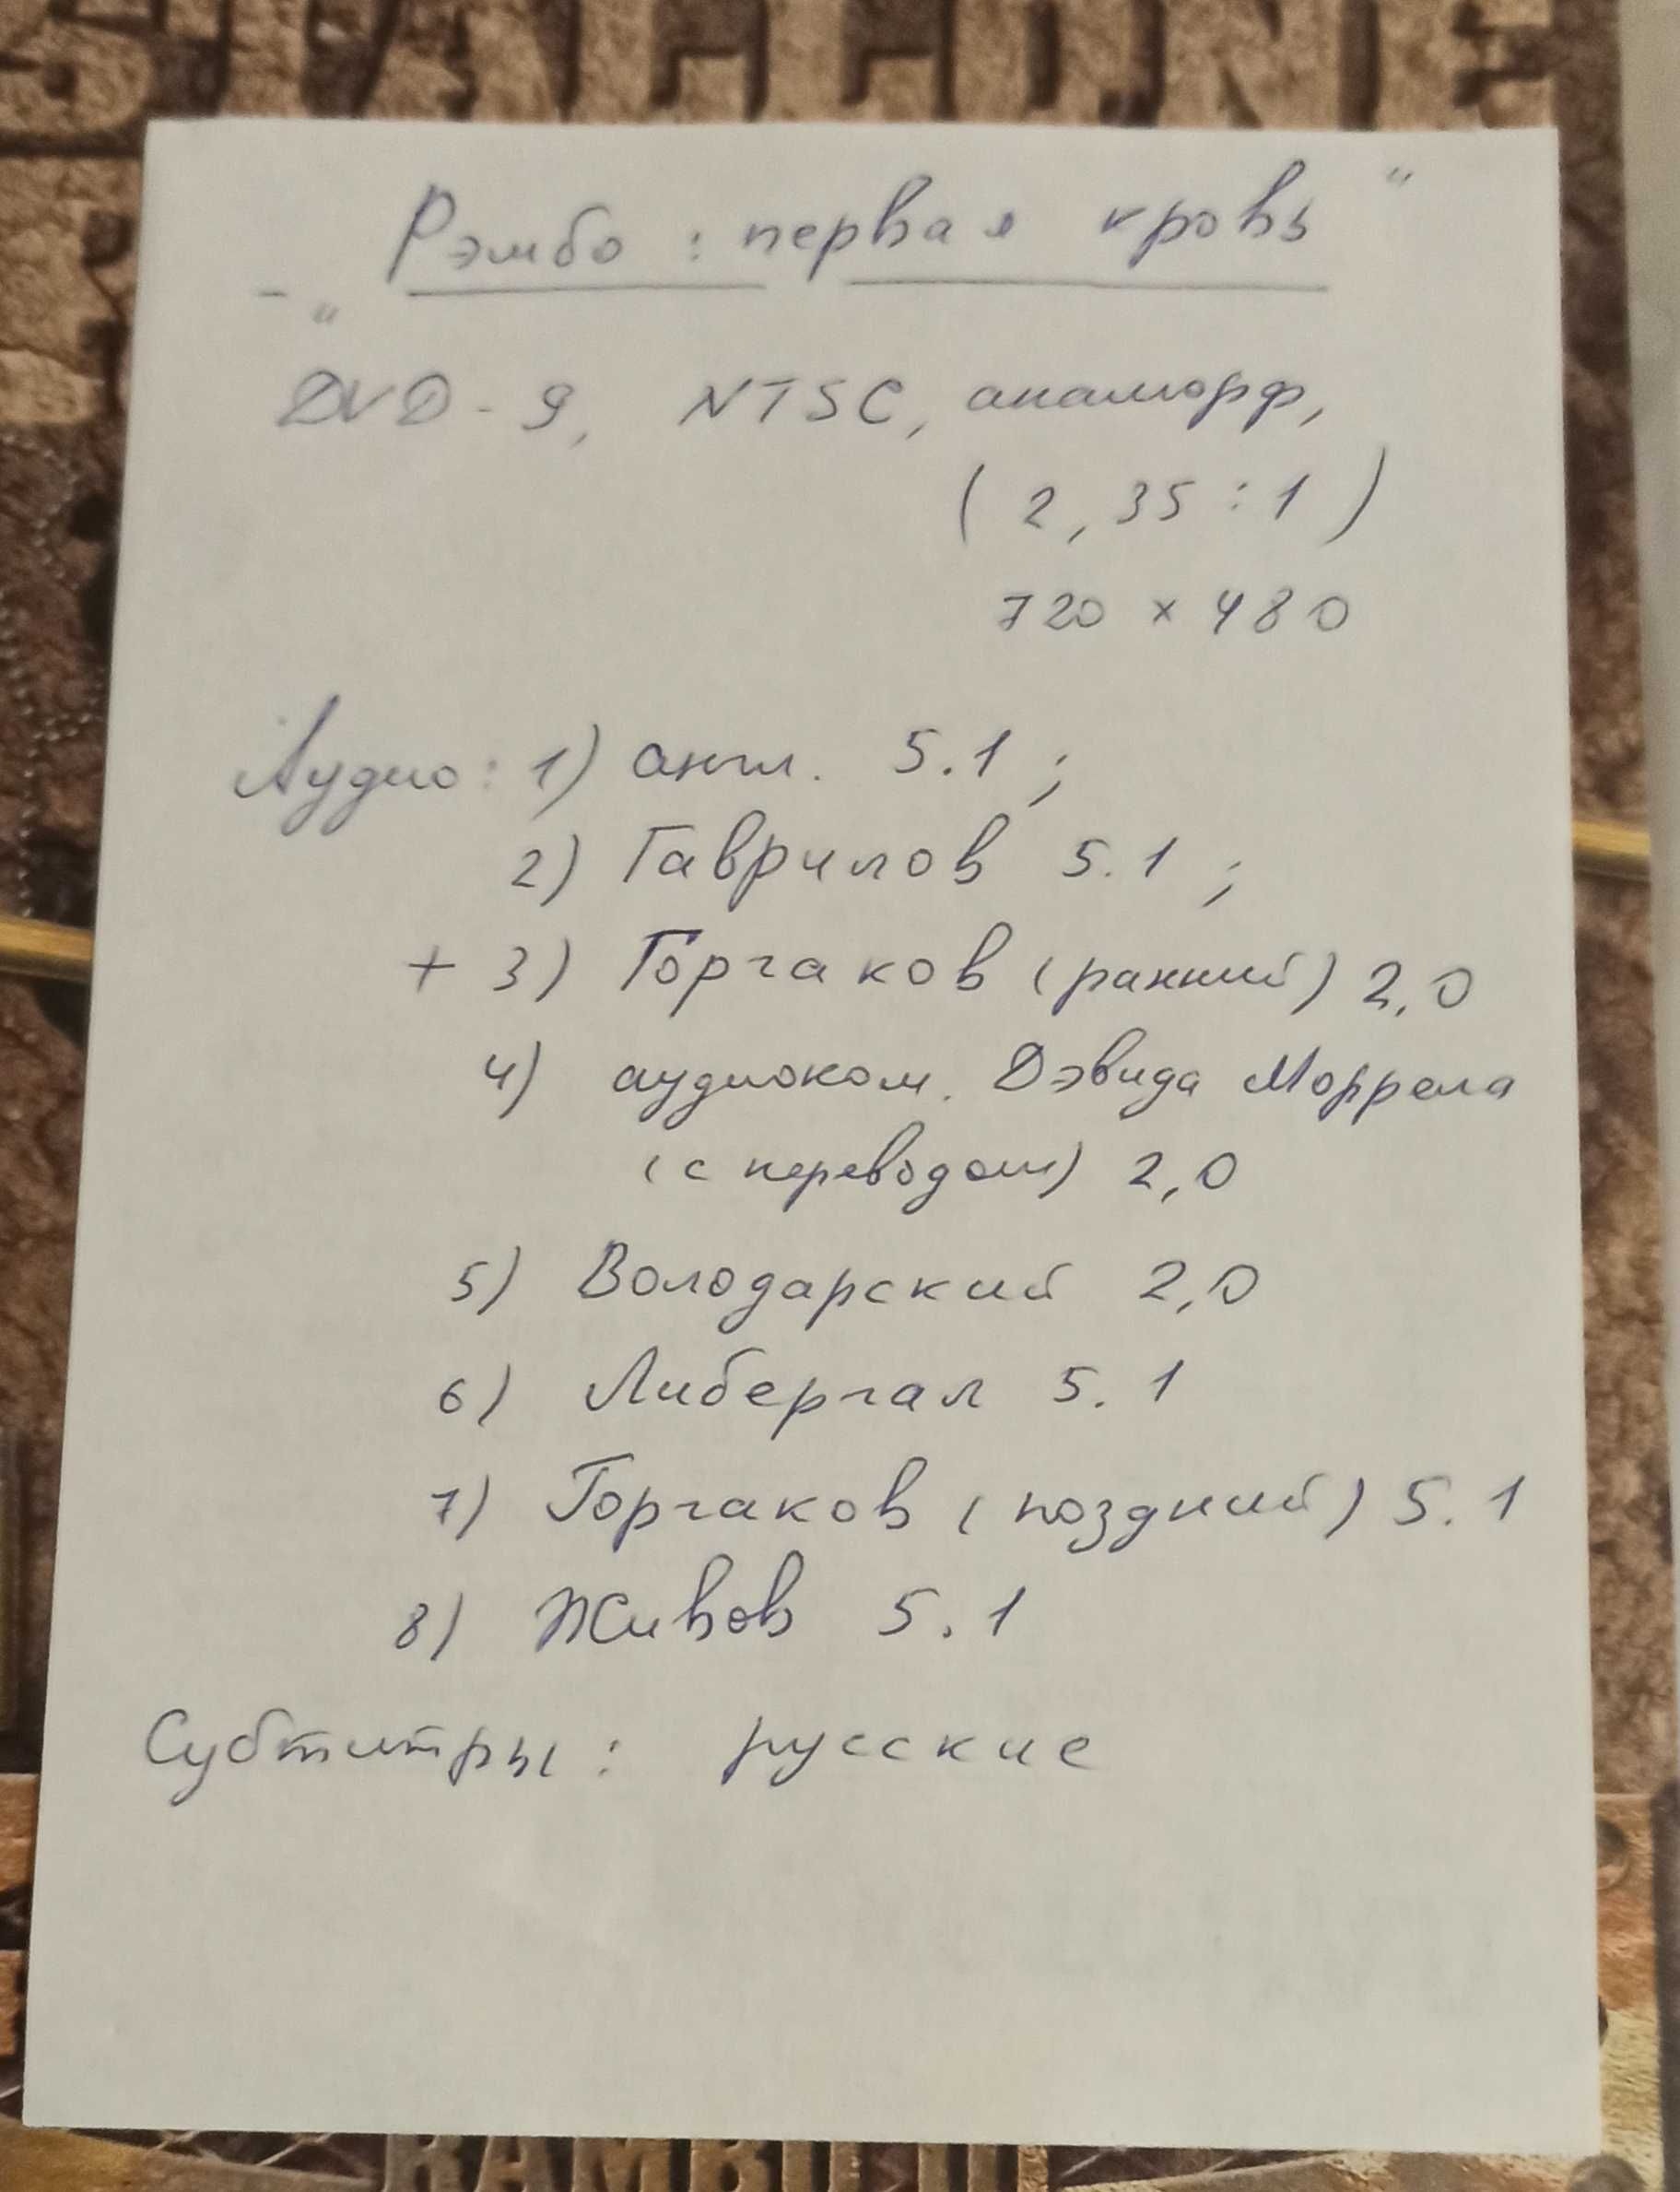 STALLONE
- "Рэмбо: первая кровь"
DVD-9, NTSC, анаморф,
(2,35:1)
720 x 480
Аудио: 1) англ. 5.1;
2) Гаврилов 5.1;
+ 3) Горчаков (ранний) 2,0
4) аудиоком. Дэвида Моррела
(с переводом) 2,0
5) Володарский 2,0
6) Либергал 5.1
7) Горчаков (поздний) 5.1
8) Живов 5.1
Субтитры: русские
RAMBO II